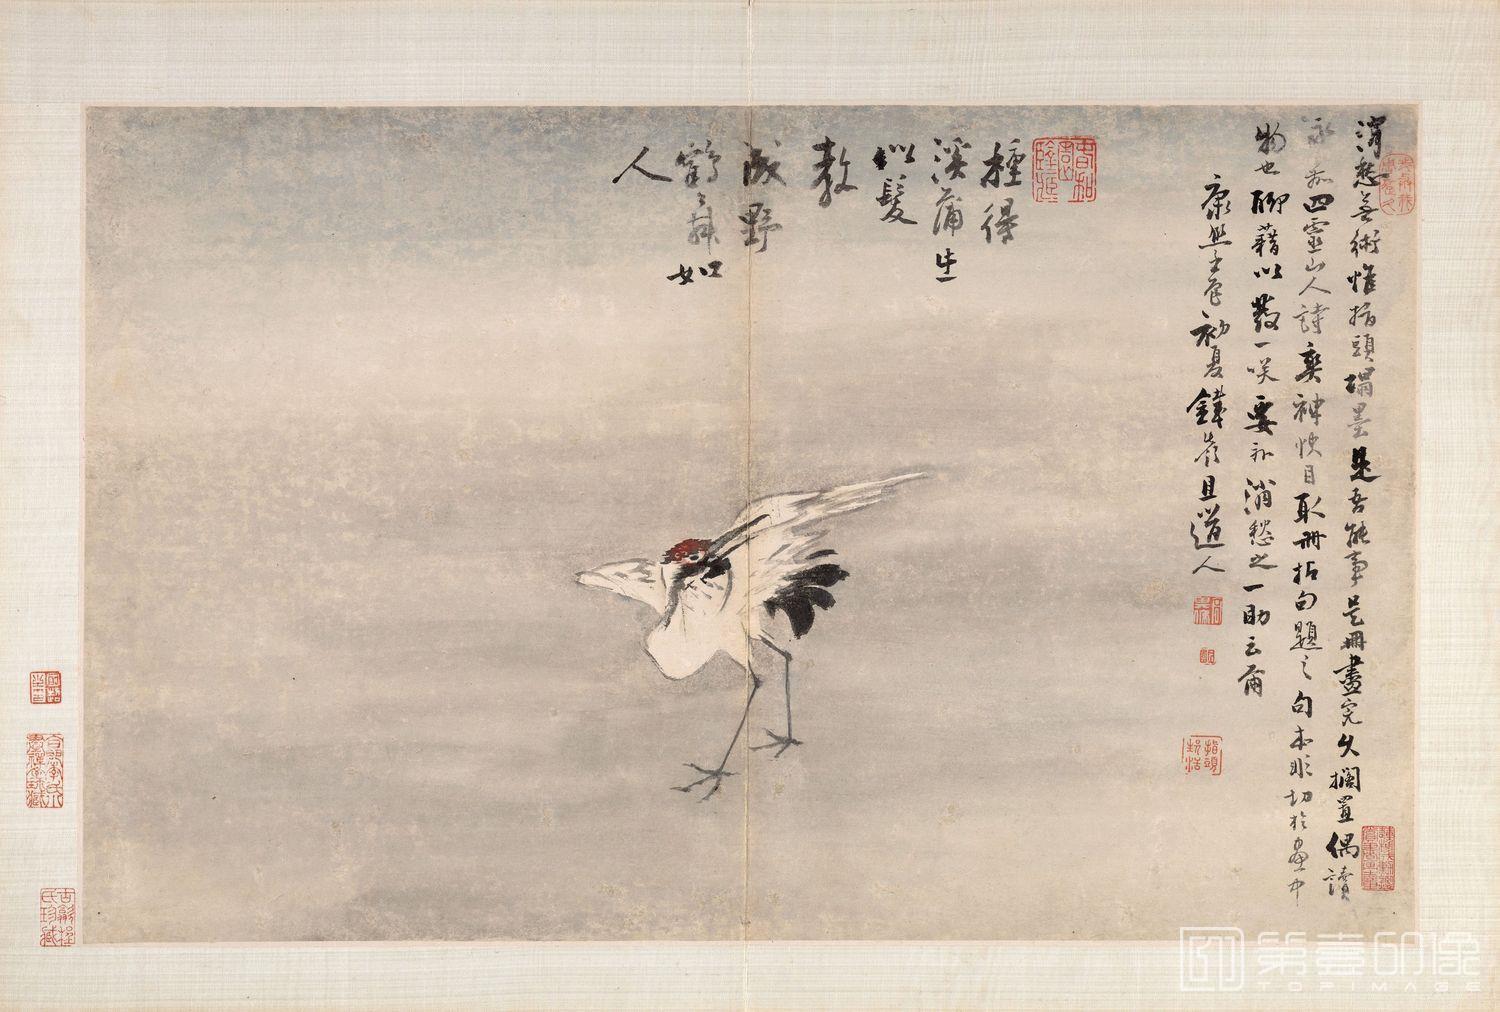 消愁無術惟指頭搨墨是吾能事是冊畫完久擱置偶讀
泳斋四靈山人詩爽神快目取冊拈句題之句本非切於畫中
物也聊藉以發一咲要亦消愁之一助云爾
康熙壬辰初夏鐵嶺且道人
種得
溪蒲生
似髮
教
成野
鶴舞如
人
第壹印像
TOPIMAGE